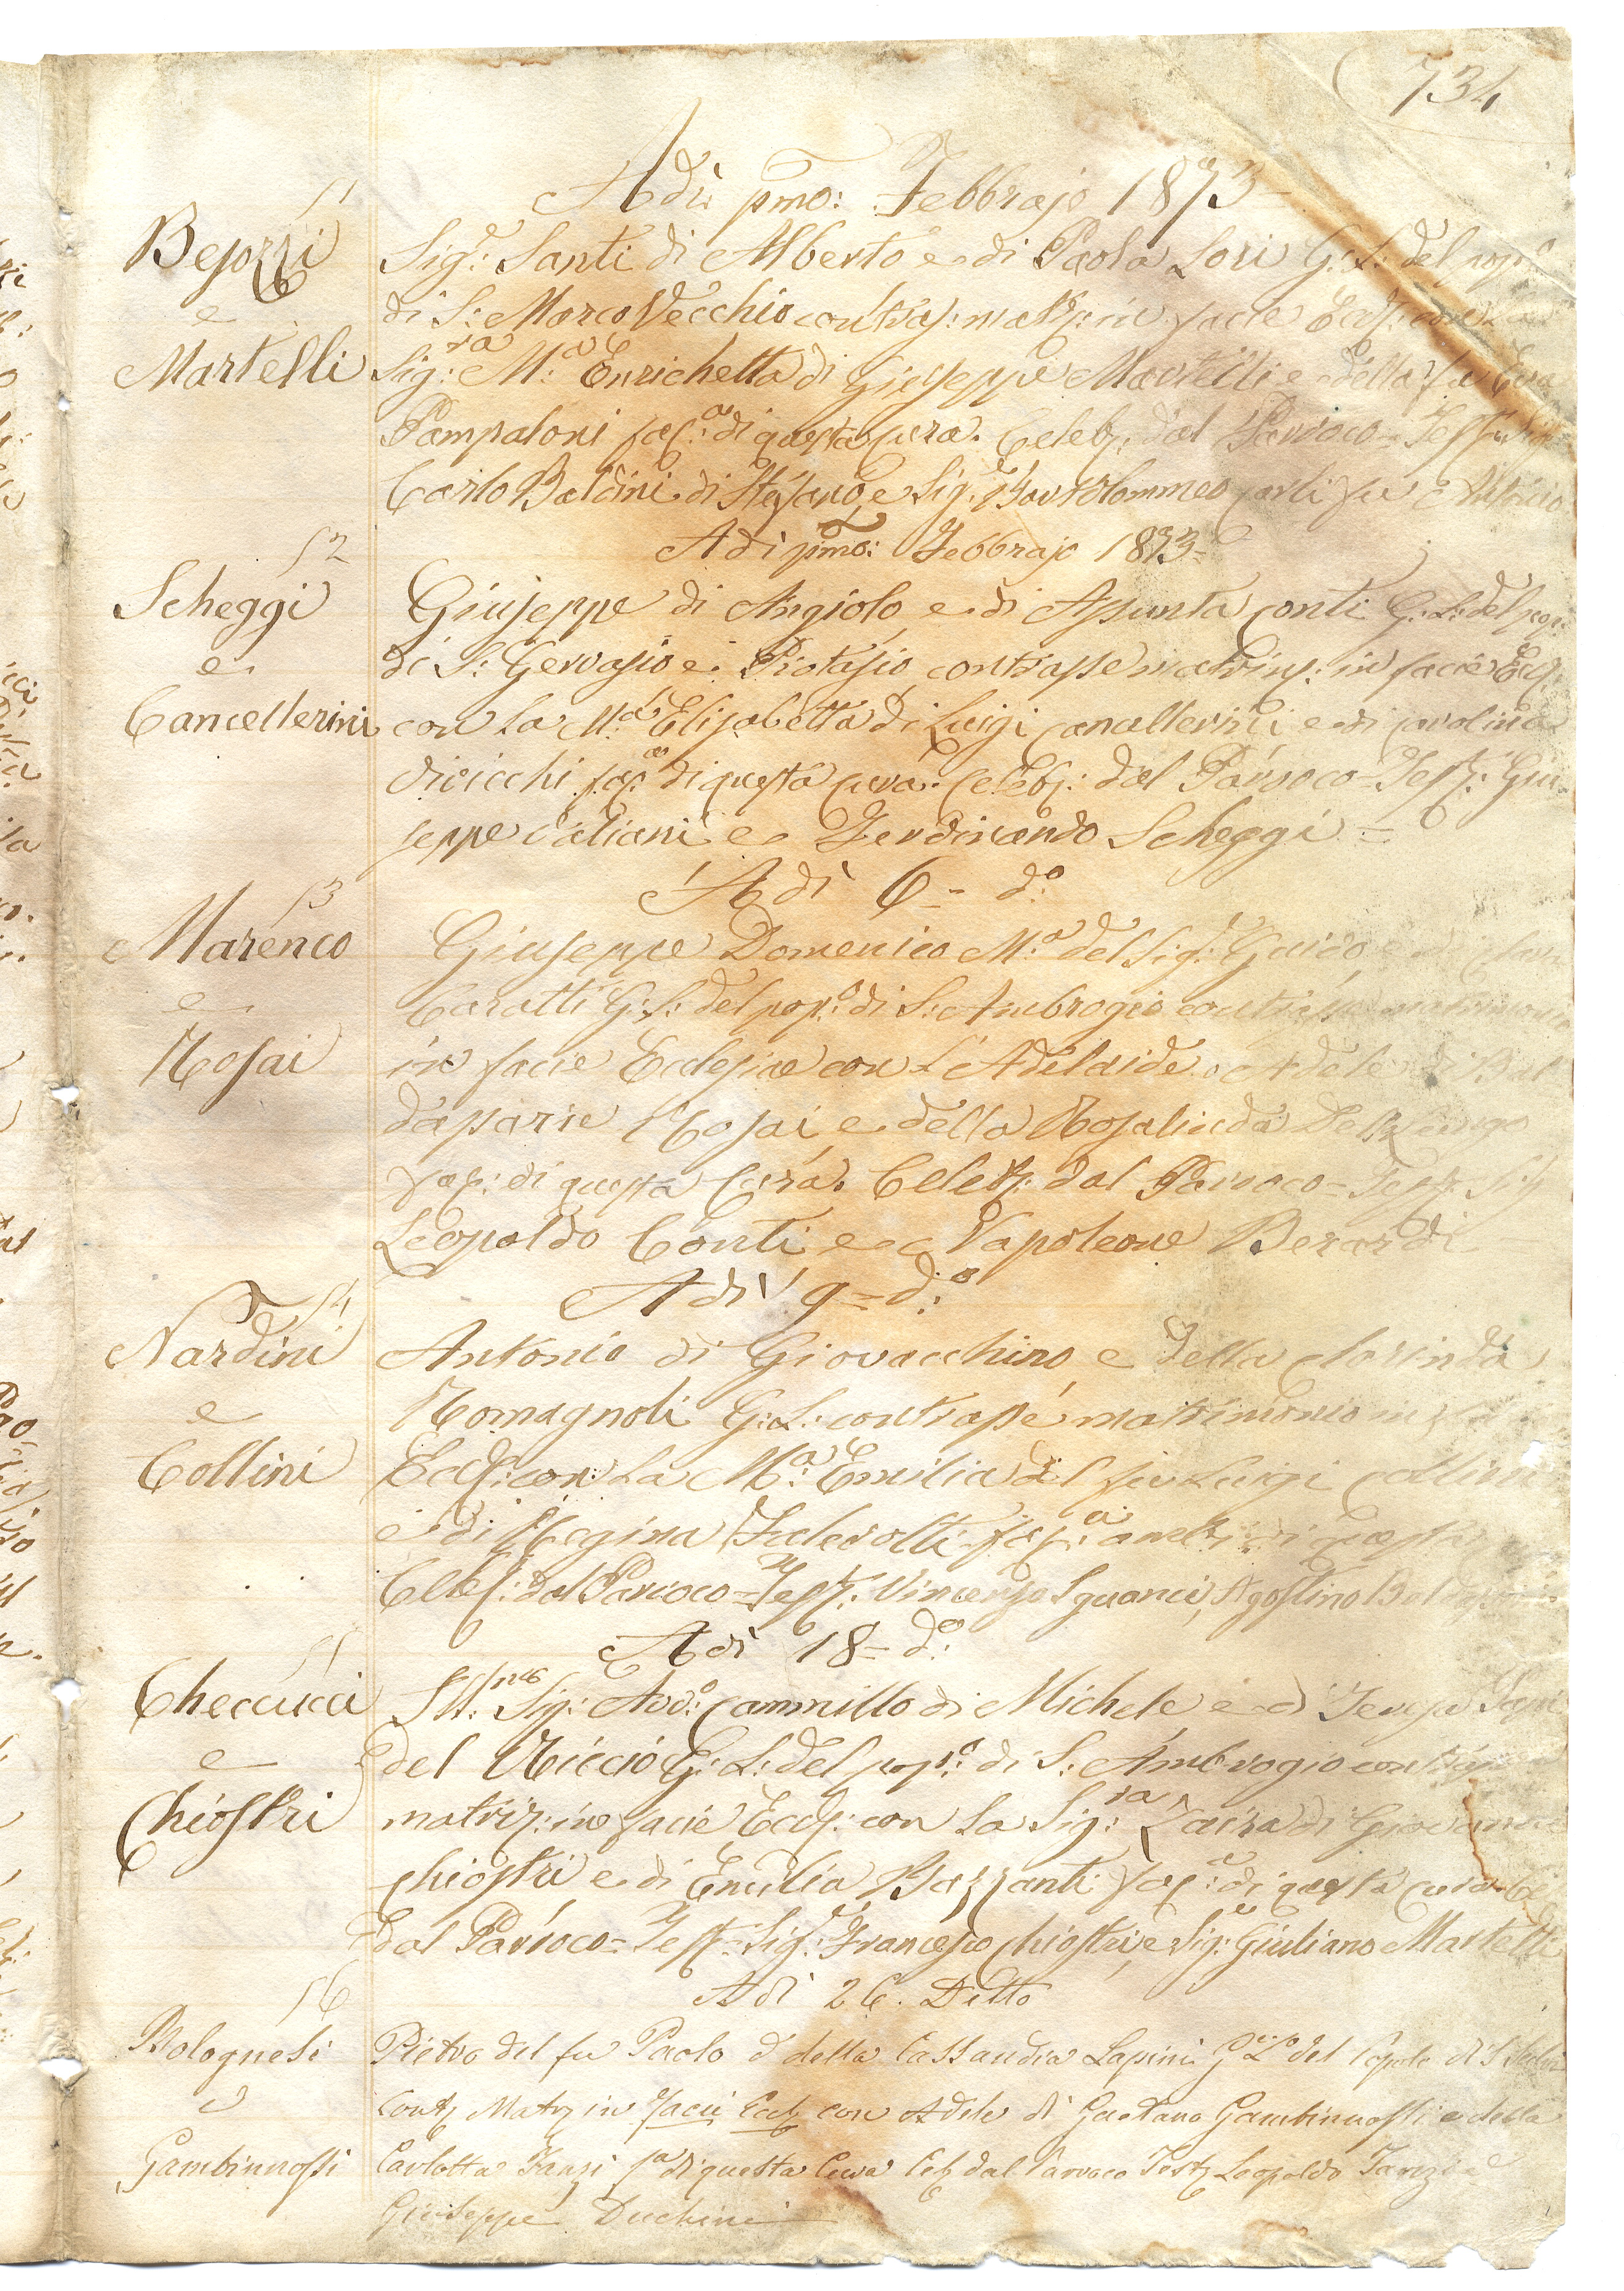 734
Adì pmo: Febbrajo 1873
51
Bejozzi
e
Martelli
Sig.e Santi di Alberto e di Paola Lori G: L: del pop.o
di S: Marco Vecchio contras: matr: in facie Eccl: con la
Sig:ra M:a Enrichetta di Giuseppe Martelli e della fu
Pampaloni fac:a di questa Cura. Celeb: dal Parroco = Test: Sig:
Carlo Baldini di Stefano, e Sig.e Bartolommeo Carli fu
Adì pmo: Febbrajo 1873 =
52
Scheggi
e
Cancellerini
Giuseppe di Angiolo, e di Assunta Conti G: L: del pop:
di S: Gervasio e Protasio, contrasse matrim: in facie Eccl:
con la M:a Elisabetta di Luigi Cancellerini e di Carolina
Diricchi fac:a di questa Cura. Celeb: dal Parroco = Test: Giu-
seppe Italiani e Ferdinando Scheggi =
Adì 6 = d:o
53
Marenco
e
Rosai
Giuseppe Domenico M:a del Sig:e Guido e di
Caratti G: L: del pop:o di S: Ambrogio contrasse matrimonio
in facie Ecclesiae con l'Adelaide Adele di Bal
dassarre Rosai e della Rosalinda Del Lungo
fac: di questa Cura. Celeb: dal Parroco = Test: Sig
Leopoldo Conti e Napoleone Berardi
Adì 9 = d:o
54
Nardini
e
Collini
Antonio di Giovacchino, e della Clorinda
Romagnoli G: L: contrasse matrimonio in
Eccl: con la M:a Emilia del fu Luigi Collini
e di Regina Federolti fac:a amb: di questa
Celeb: dal Parroco = Test: Vincenzo Sguanci, Agostino
Adì 18 = d:o
55
Checcucci
e
Chiostri
Ill:mo Sig: Avv:o Cammillo di Michele e di Teresa
del Riccio G: L: del pop:o di S: Ambrogio contrasse
matrim: in facie Eccl: con la Sig:ra Zaira di Giovanni
Chiostri e di Emilia Bazzanti fac:a di questa Cura. Cel
dal Parroco = Test = Sig:e Francesco Chiostri, e Sig:e Giuliano Martelli
Adì 26. Detto
56
Bolognesi
e
Gambinossi
Pietro del fu Paolo e della Cassandra Lapini G. L. del Popolo di S.
Contr Matr in facie Eccl con Adele di Gaetano Gambinossi e della
Carlotta Fanzi f.a di questa Cura Celb dal Parroco Test Leopoldo Fanzi e
Giuseppe Duchini